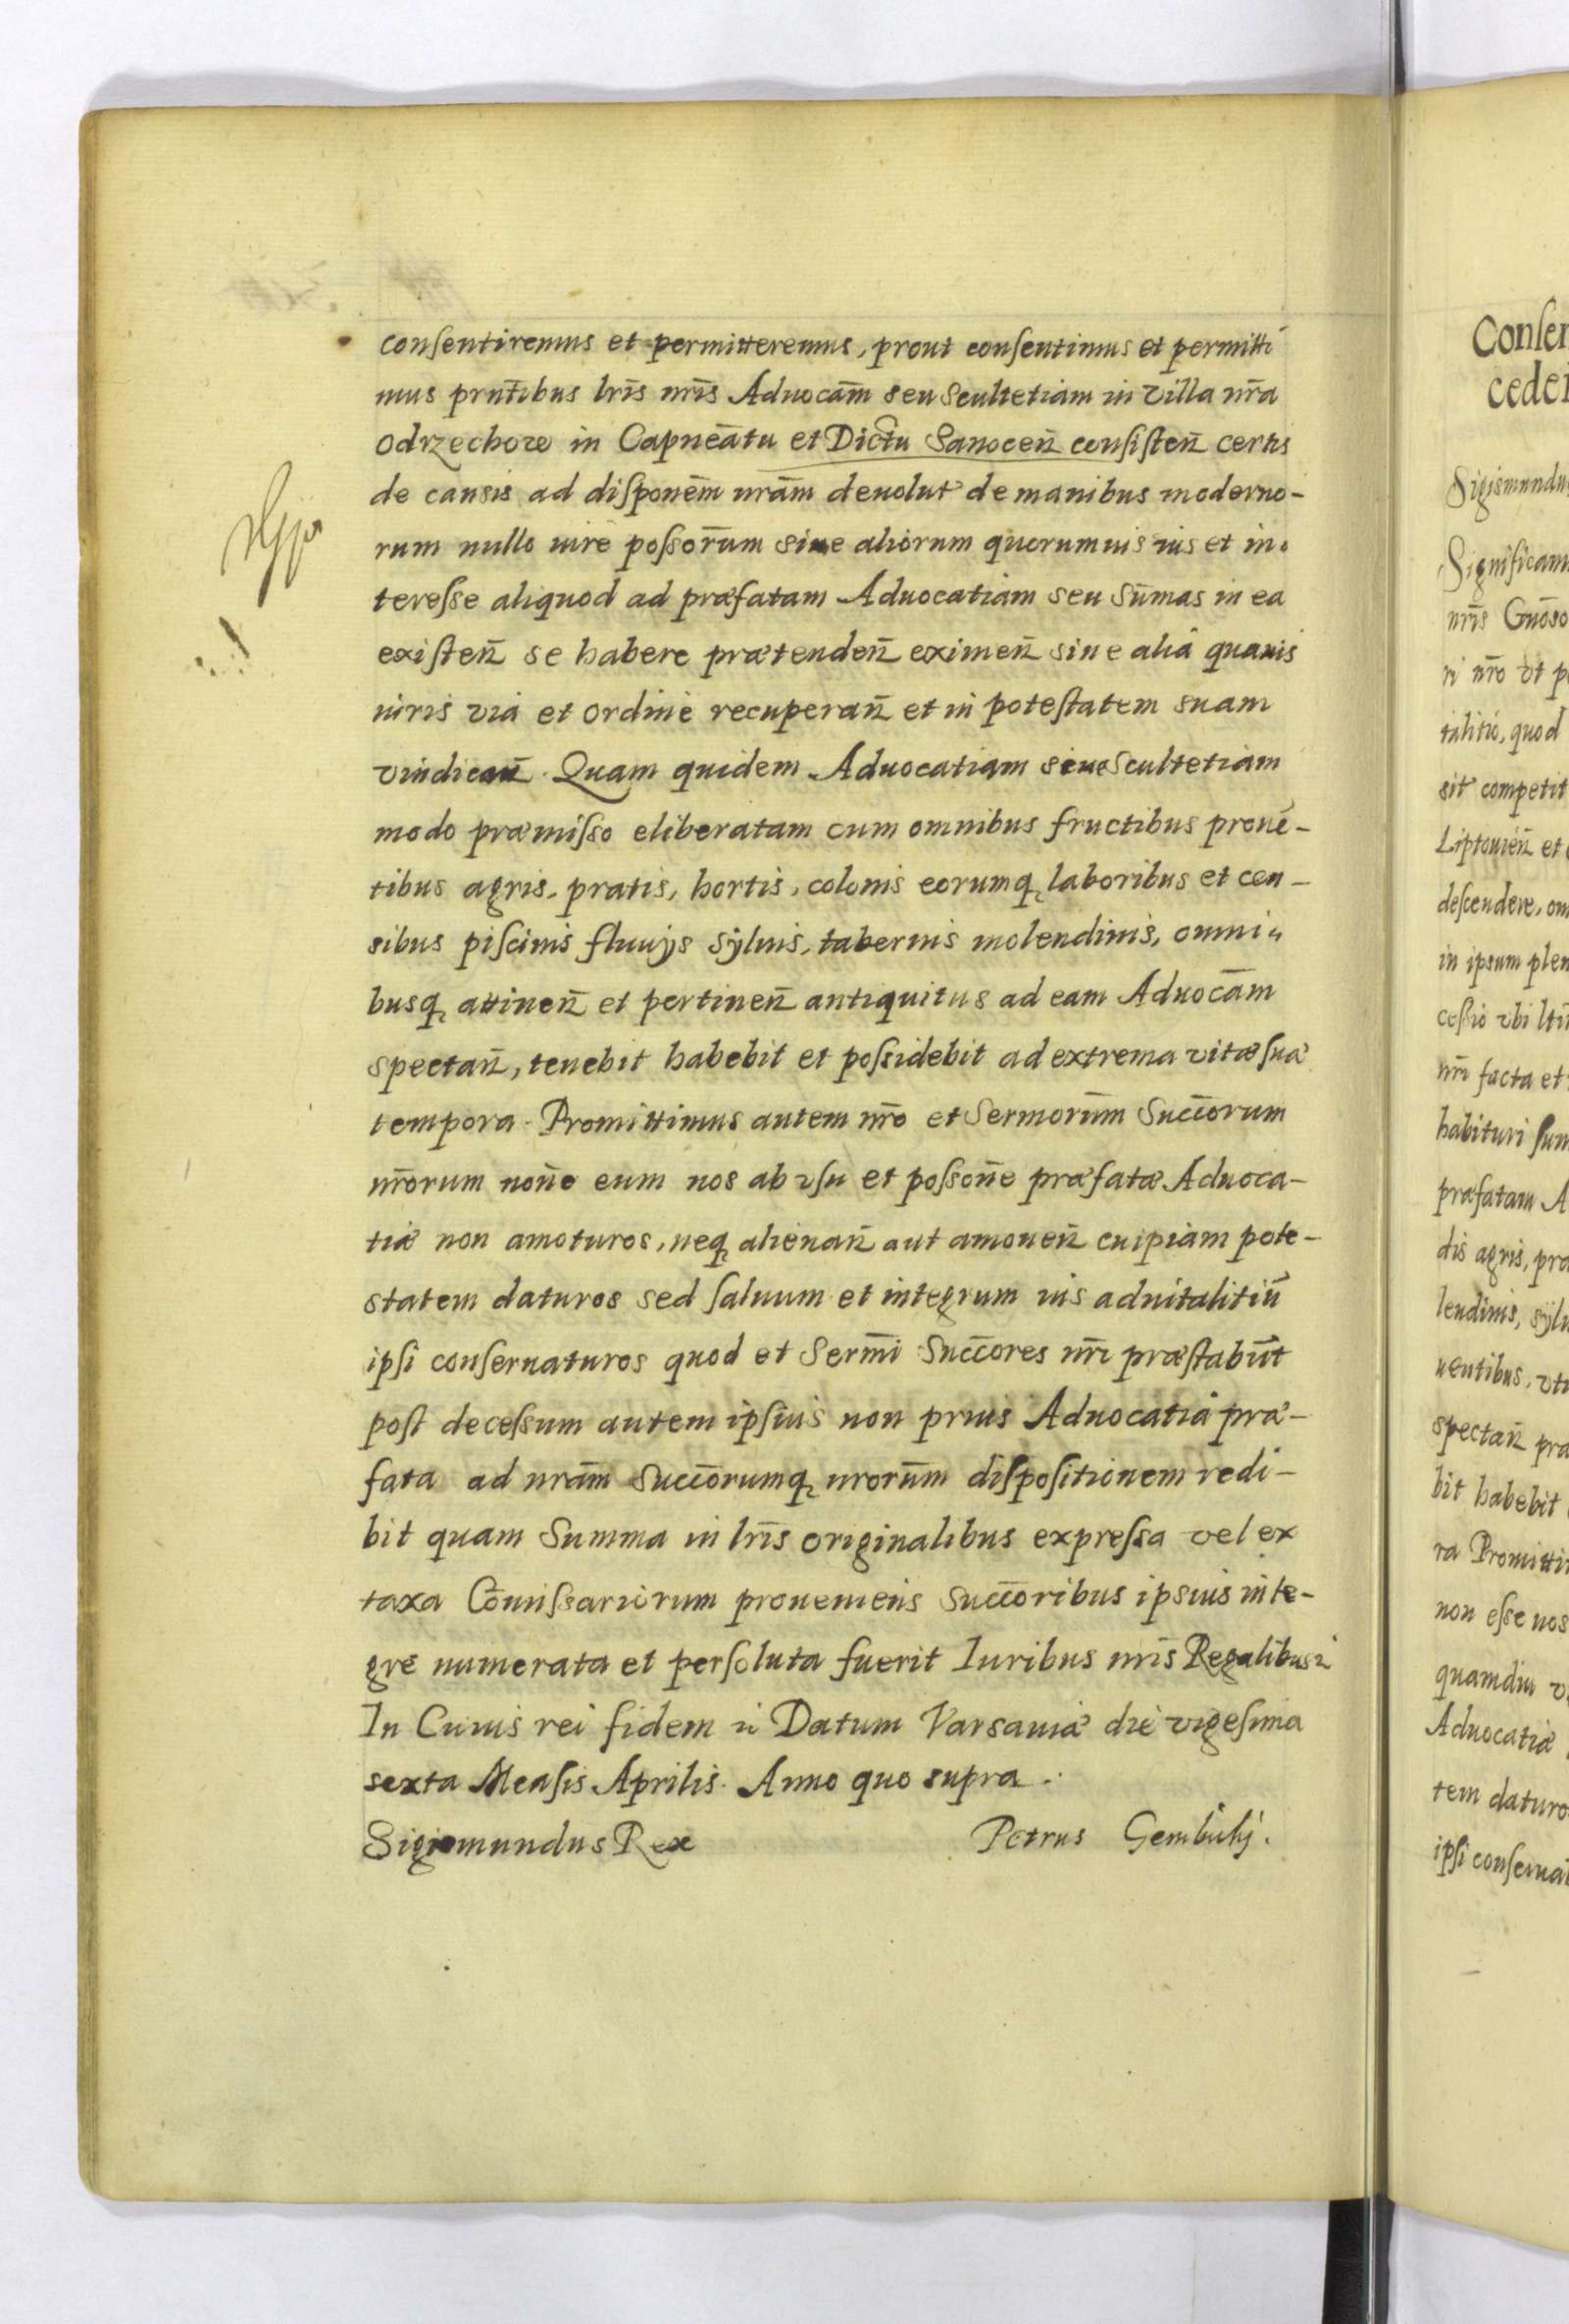 consentiremus et permitteremus, prout consentimus et permitti
mus prñtibus lrīs nrīs Aduocam̄ seu Scultetiam in Villa nr̄a
Odrzechowe in Capneātu et Dictu Sanoceñ consisteñ certis
de causis ad disponēm nrām deuolut de manibus moderno-
rum nullo iure possorūm siue aliorum quorumuis ius et in-
teresse aliquod ad præfatam Aduocatiam seu Sūmas in ea
existeñ se habere prætendeñ eximeñ siue alia quauis
iuris via et ordine recuperañ et in potestatem suam
vindicañ. Quam quidem Aduocatiam siue Scultetiam
modo præmisso eliberatam cum omnibus fructibus prouē-
tibus agris, pratis, hortis, colonis eorumq laboribus et cen-
sibus piscinis fluuijs syluis, tabernis molendinis, omni-
busq attineñ et pertineñ antiquitus ad eam Aduocām
spectañ, tenebit habebit et possidebit ad extrema vitæ suæ
tempora. Promittimus autem nr̄o et Sermorūm Succōrum
nr̄orum noñe eum nos ab vsu et possoñe præfatæ Aduoca-
tiæ non amoturos, neq alienañ aut amoueñ cuipiam pote-
statem daturos sed saluum et integrum ius aduitalitiū
ipsi conseruaturos quod et Sermi Succōres nr̄i præstabūt
post decessum autem ipsius non prius Aduocatia præ-
fata ad nrām Succōrumq nrorūm dispositionem redi-
bit quam Summa in lrīs originalibus expressa vel ex
taxa Cōmissariorum proueniens Succōribus ipsius inte-
gre numerata et persoluta fuerit Iuribus nrīs Regalibus
In Cuius rei fidem Datum Varsauiæ die vigesima
sexta Mensis Aprilis. Anno quo supra.
Sigismundus Rex Petrus Gembicky.
Consen
ceder
Sigismundu
Significam
nrīs Gnōso
ri nr̄o vt p
talitio, quod
sit competit
Liptouieñ et
descendere, om
in ipsum plen
cessio vbi
nr̄i facta et
habituri sum
præfatam A
dis agris, pra
lendinis, sylu
uentibus, vti
spectañ pra
bit habebit
ra Promitti
non esse nos
quamdiu v
Aduocatiæ
tem daturo
ipsi conserua